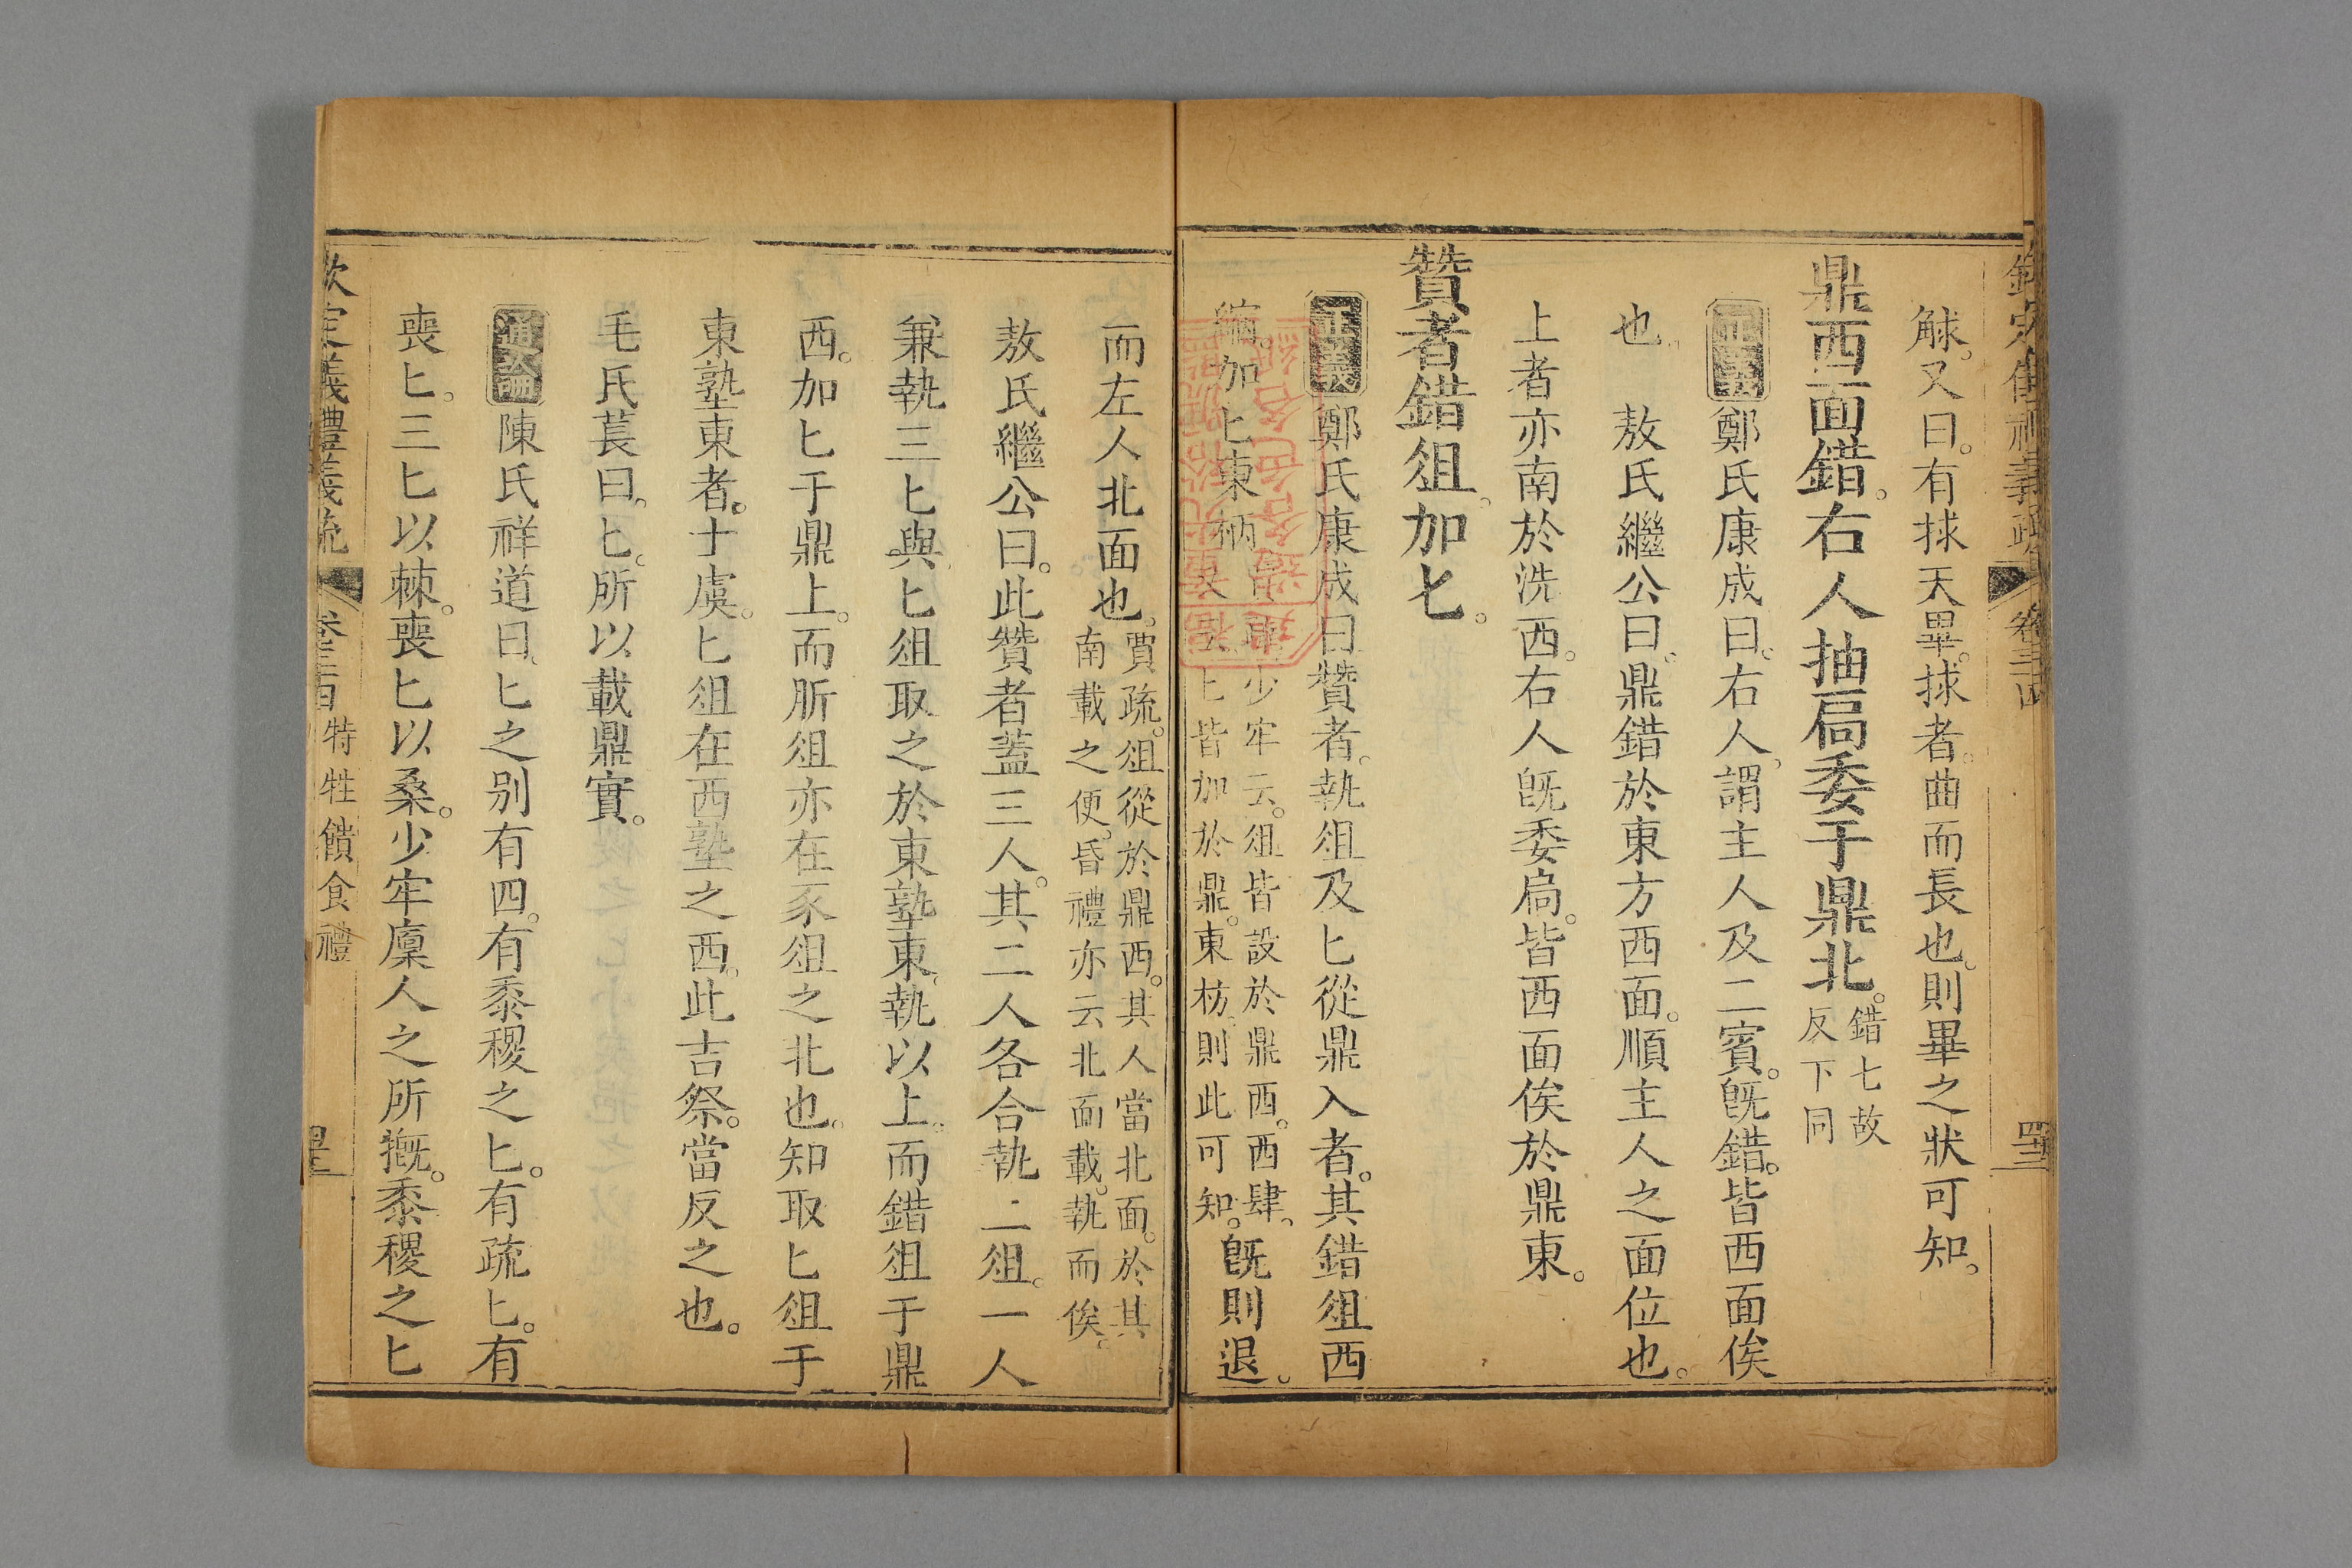 觩。又曰。有捄天畢。捄者。曲而長也。則畢之狀可知。
鼎西面錯。右人抽扃委于鼎北。錯七故
反下同
正義鄭氏康成曰。右人。謂主人及二賓。旣錯。皆西面俟
也。敖氏繼公曰。鼎錯於東方西面。順主人之面位也。
上者亦南於洗西。右人旣委扃。皆西面俟於鼎東。
贊者錯俎加匕。
正義鄭氏康成曰贊者。執俎及匕從鼎入者。其錯俎西
縮。加匕東柄
少牢云。俎皆設於鼎西。西肆。
匕皆加於鼎。東枋。則此可知。旣則退。
而左人北面也。賈疏。俎從於鼎西。其人當北面。於其
南載之便。昏禮亦云北面載。執而俟。
敖氏繼公曰。此贊者蓋三人。其二人各合執二俎。一人
兼執三匕與匕俎取之於東塾東。執以上。而錯俎于鼎
西。加匕于鼎上。而肵俎亦在豕俎之北也。知取匕俎于
東塾東者。士虞。匕俎在西塾之西。此吉祭。當反之也。
毛氏萇曰。匕。所以載鼎實。
通論陳氏祥道曰。匕之别有四。有黍稷之匕。有疏匕。有
喪匕。三匕以棘。喪匕以桑。少牢廩人之所摡。黍稷之匕
欽定義禮義疏 特牲饋食禮